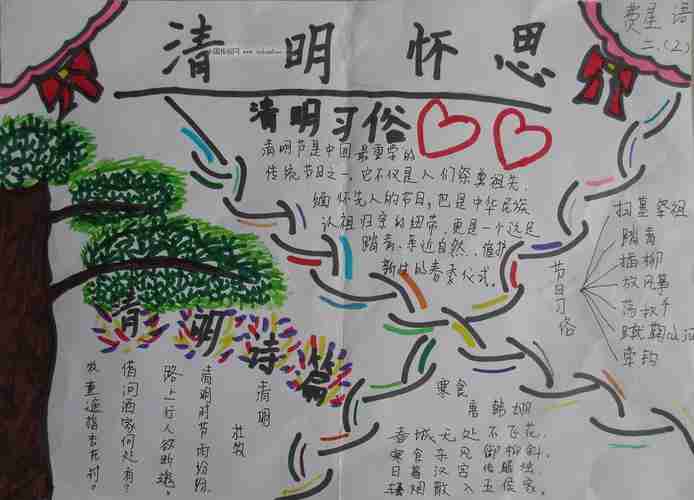 清明怀思
二.(2)
清明习俗
清明节是中国最重要的
传统节日之一,它不仅是人们祭奠祖先、
缅怀先人的节日,也是中华民族
认祖归宗的纽带,更是一个远足
踏青、亲近自然、催护
新生的春季仪式。
节日习俗
扫墓祭祖
踏青
插柳
放风筝
荡秋千
蹴鞠
清明诗篇
清明
杜牧
清明时节雨纷纷,
路上行人欲断魂。
借问酒家何处有?
牧童遥指杏花村。
寒食
唐 韩翃
春城无处不飞花,
寒食东风御柳斜。
日暮汉宫传蜡烛,
轻烟散入五侯家。